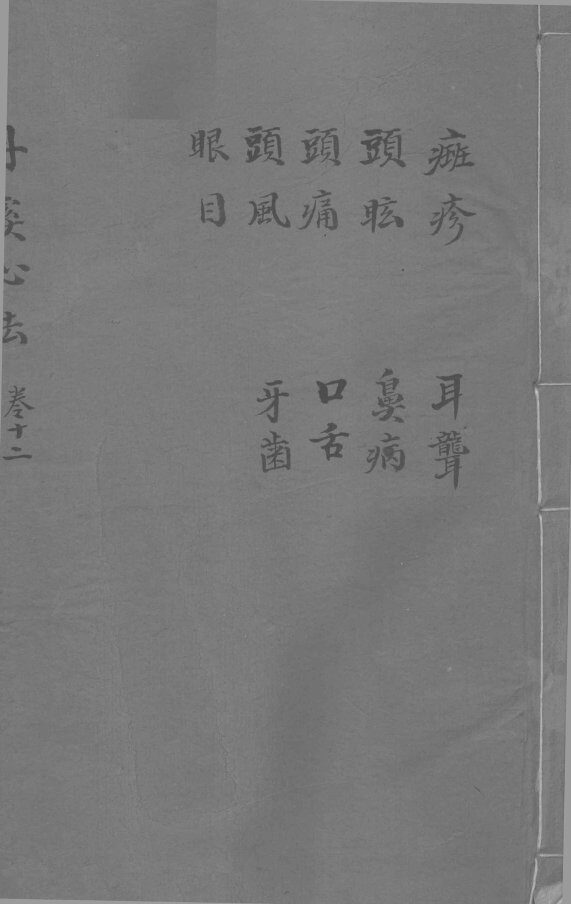 癍疹
頭眩
頭痛
頭風
眼目
耳聾
鼻病
口舌
牙齒
丹溪心法 卷十二